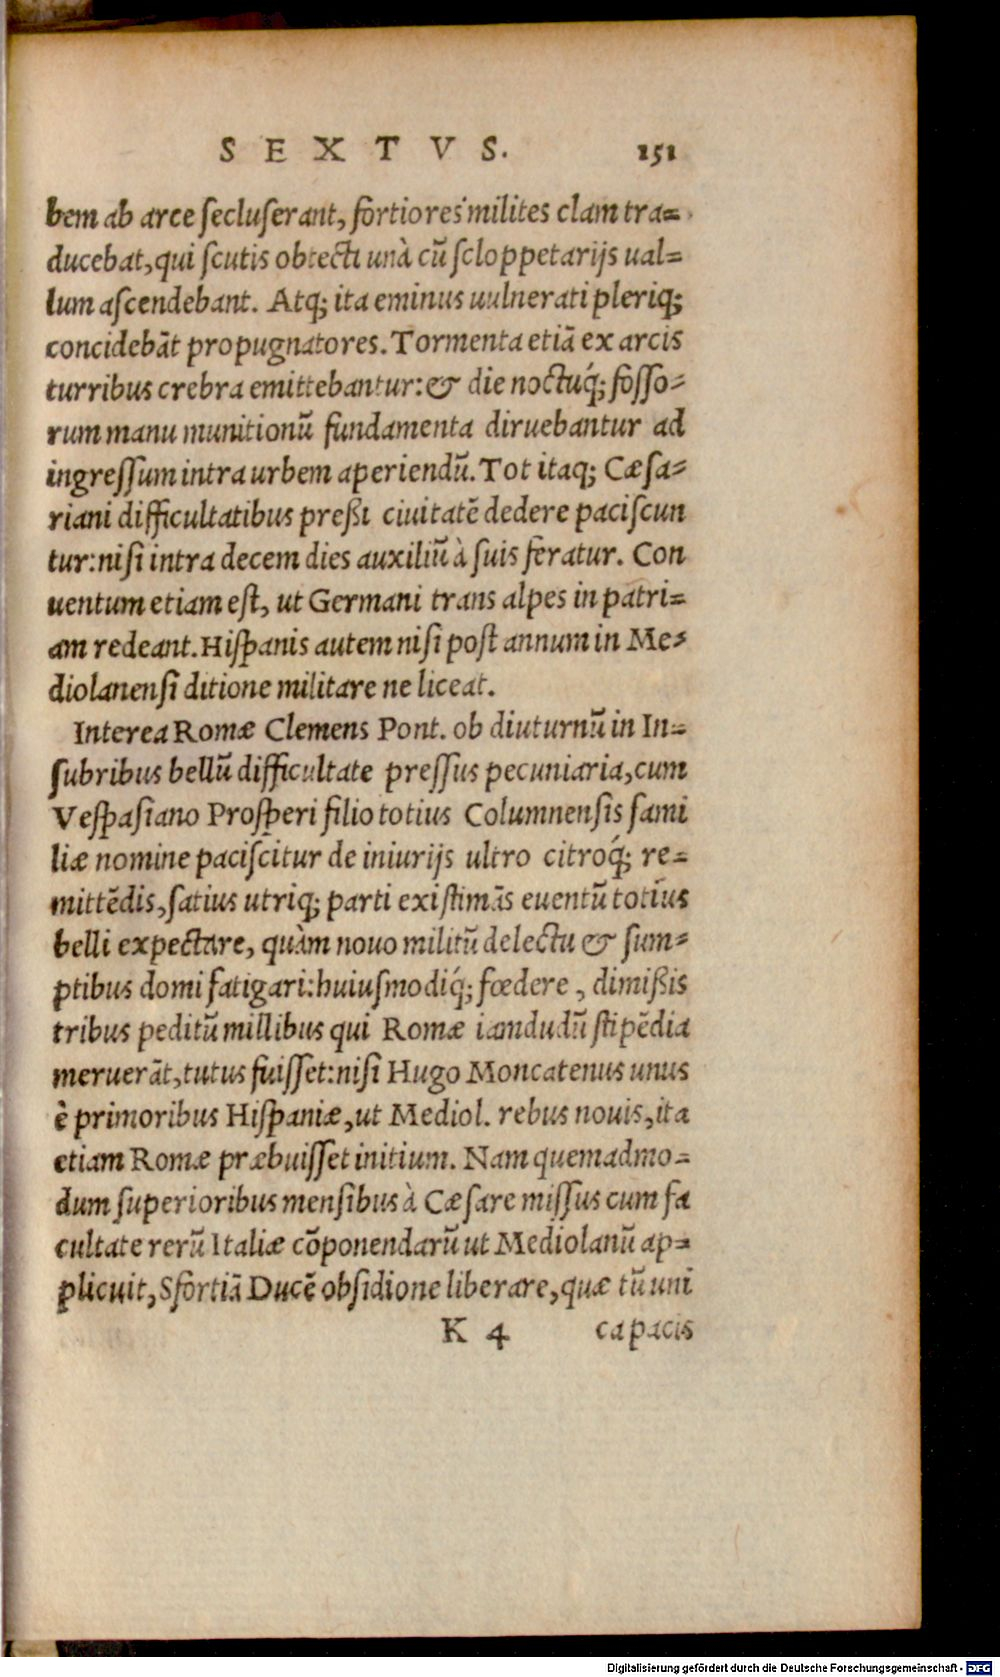 SEXTVS. 151
bem ab arce ſecluſerant, fortiores milites clam tra=
ducebat, qui ſcutis obtecti unà cũ ſcloppetarijs ual=
lum aſcendebant. Atq; ita eminus uulnerati pleriq;
concidebãt propugnatores. Tormenta etiã ex arcis
turribus crebra emittebantur: & die noctuq́; foſſo=
rum manu munitionũ fundamenta diruebantur ad
ingreſſum intra urbem aperiendũ. Tot itaq; Cæſa=
riani difficultatibus preßi ciuitatẽ dedere paciſcun
tur: niſi intra decem dies auxiliũ à ſuis feratur. Con
uentum etiam eſt, ut Germani trans alpes in patri=
am redeant. Hiſpanis autem niſi poſt annum in Me=
diolanenſi ditione militare ne liceat.
Interea Romæ Clemens Pont. ob diuturnũ in In=
ſubribus bellũ difficultate preſſus pecuniaria, cum
Veſpaſiano Proſperi filio totius Columnenſis fami
liæ nomine paciſcitur de iniurijs ultro citroq́; re=
mittẽdis, ſatius utriq; parti exiſtimãs euentũ totius
belli expectare, quàm nouo militũ delectu & ſum=
ptibus domi fatigari: huiuſmodiq́; fœdere, dimißis
tribus peditũ millibus qui Romæ iamdudũ ſtipẽdia
meruerãt, tutus fuiſſet: niſi Hugo Moncatenus unus
è primoribus Hiſpaniæ, ut Mediol. rebus nouis, ita
etiam Romæ præbuiſſet initium. Nam quemadmo=
dum ſuperioribus menſibus à Cæſare miſſus cum fa
cultate rerũ Italiæ cõponendarũ ut Mediolanũ ap=
plicuit, Sfortiã Ducẽ obſidione liberare, quæ tũ uni
K 4 capacis
Digitalisierung gefördert durch die Deutsche Forschungsgemeinschaft - DFG